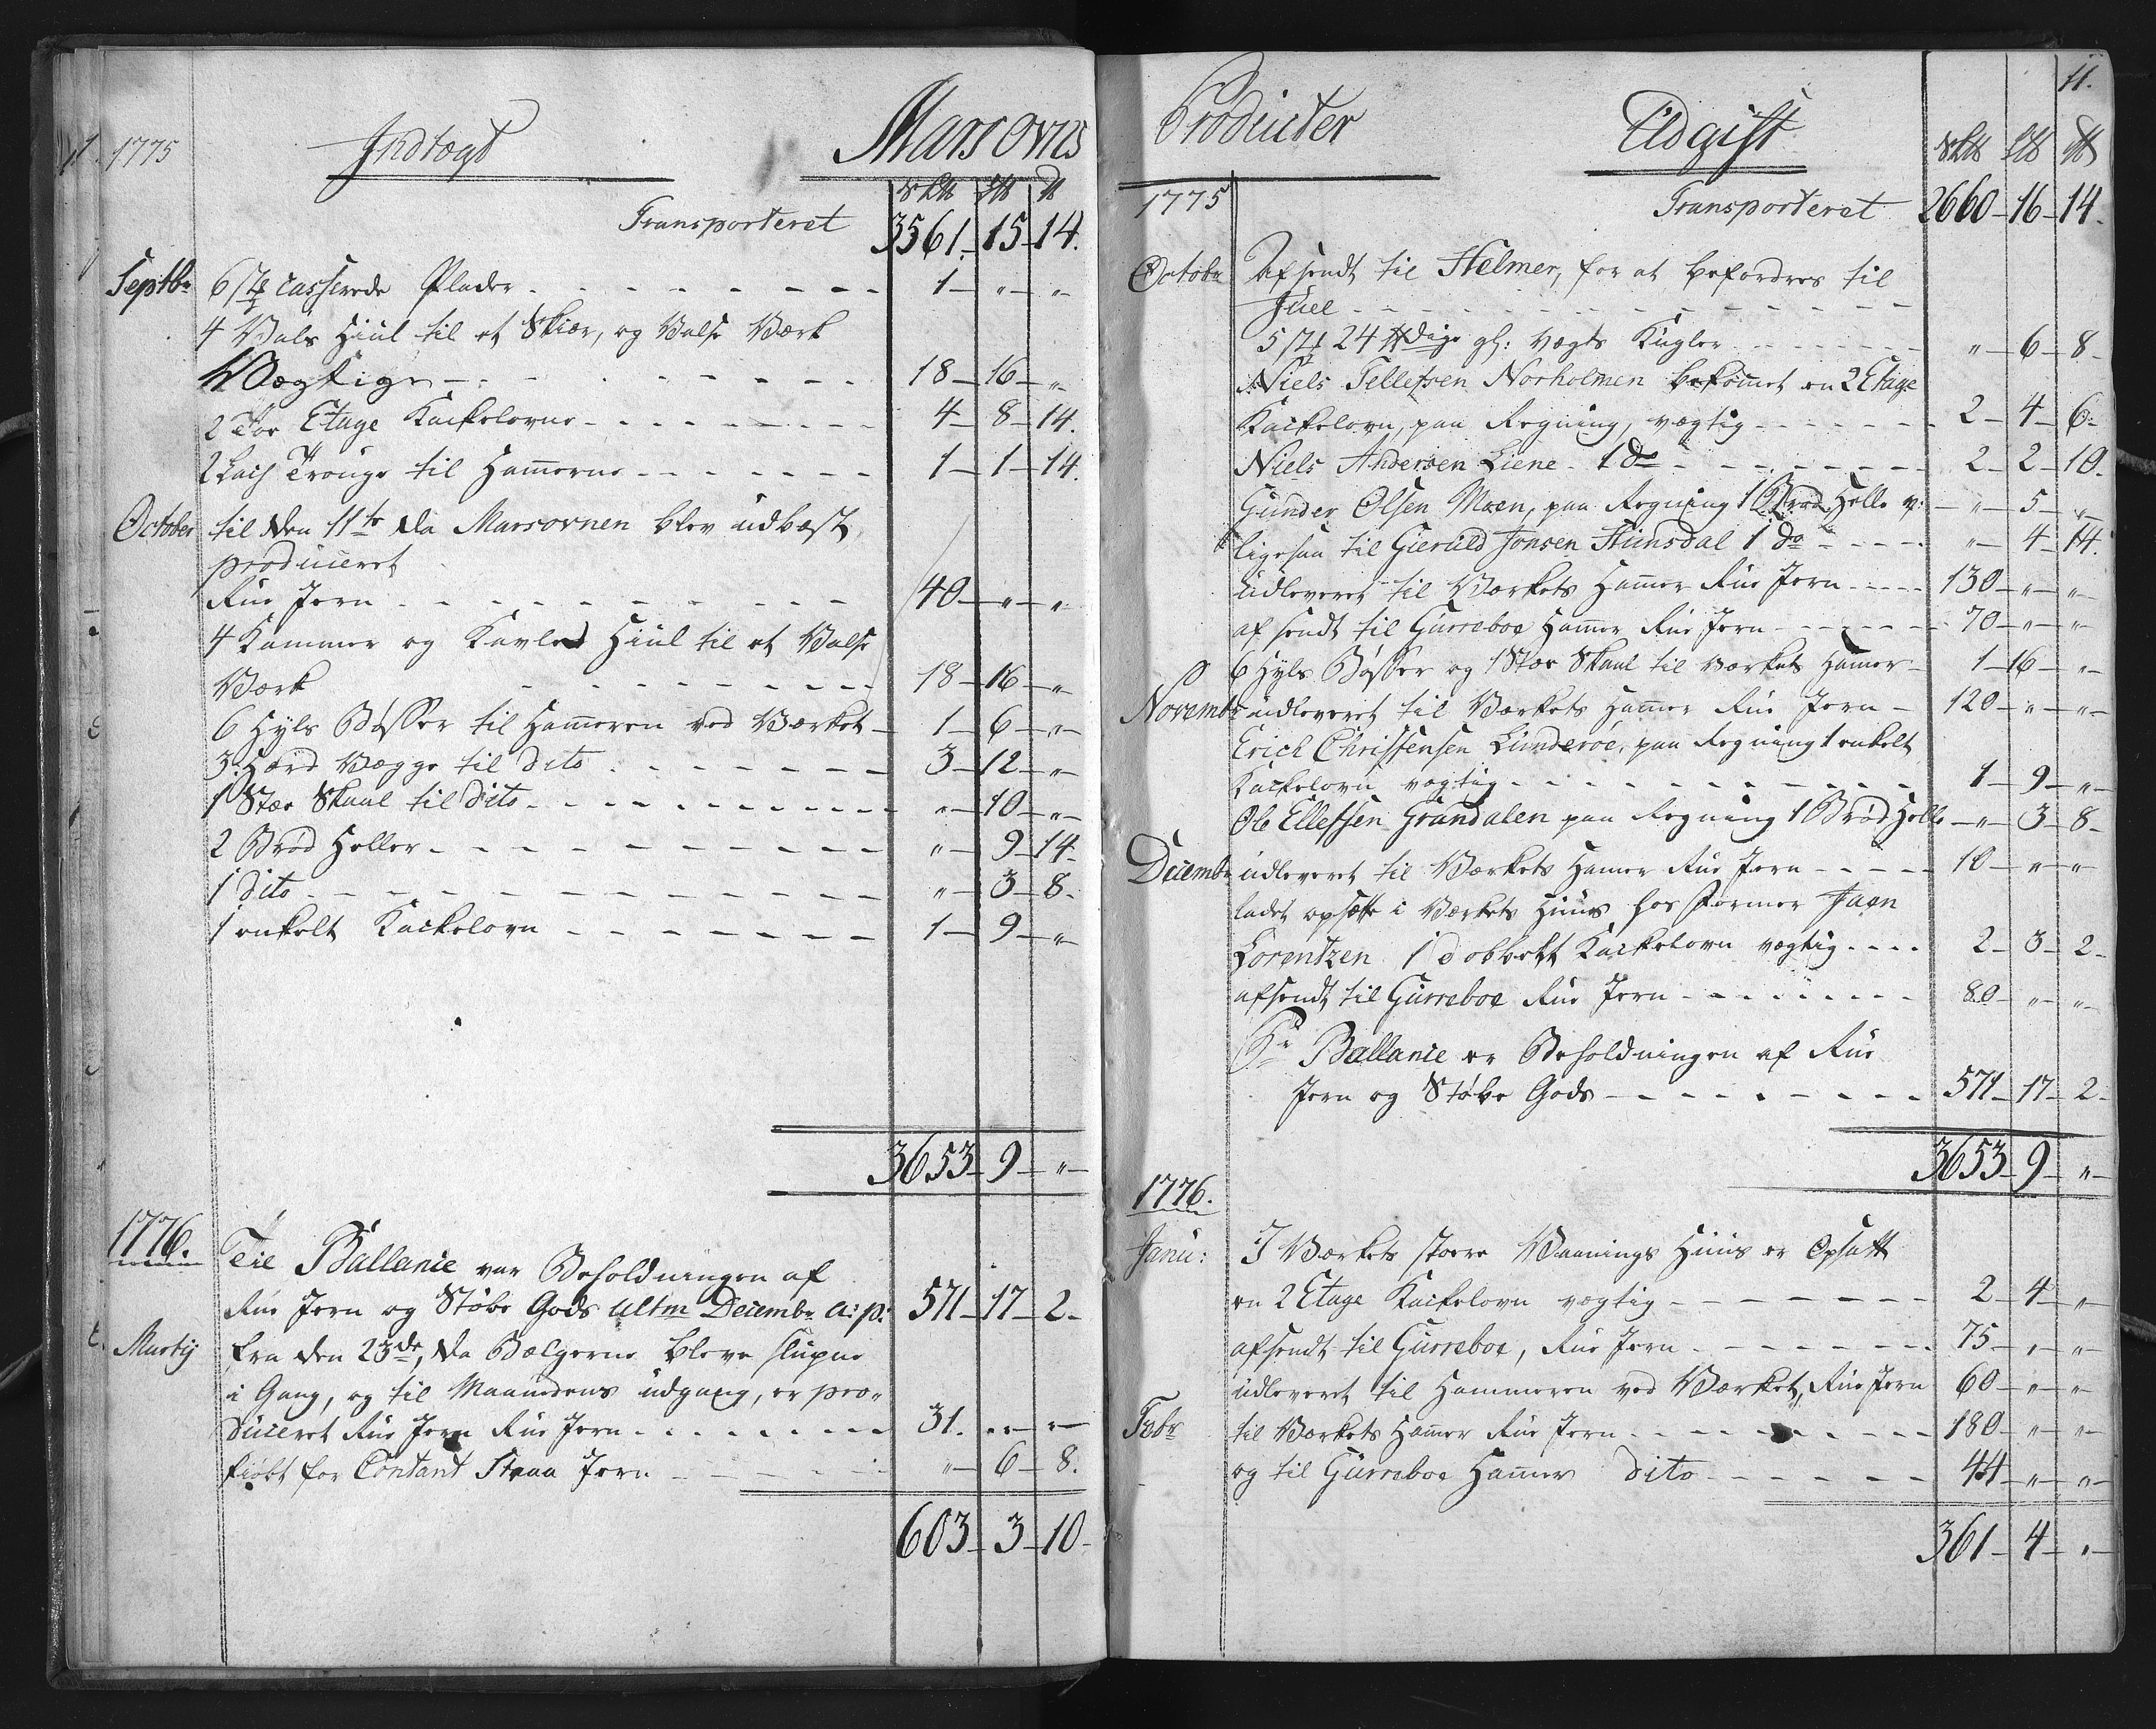 11. 1775 Indtægt Marsovns
sk℔ L℔ ℔
Transporteret 3561. 15 14.
Septbr 6 st casserede Plader 1 " "
4 Vals Hiul til et Skiær, og Valse Værk
Vægtige 18 16 "
2 Toe Etage Kackelovne 4 8 14.
2 Lach Trouge til Ham̄erne 1 1 14.
October til den 11te da Marsovnen blev udblæst,
produceret
Rue Jern 40 " "
4 Kammer og Kavled Hiul til et Valse
Værk 18 16 "
6 Hyls Bøsser til Hammeren ved Værket 1 6 "
3 Herd Vægge til Dito 3 12 "
1 Stor Skaal til Dito " 10 "
2 Brød Heller " 9 14.
1 Dito " 3 8.
1 enkelt Kackelovn 1 9 "
3653 9 "
1776. Teil Ballance var Beholdningen af
Rue Jern og Støbe Gods ultm Decembr a: p: 571 17 2.
Martij fra den 23de, da Bælgerne bleve slupne
i Gang, og til Maanedens udgang, er pro„
duceret Rue Jern Rue Jern 31. " "
kiøbt for Contant Jern " 6 8.
603 3 10.

Producter Udgift 11.
sk℔ L℔ ℔
1775 Transporteret 2660 16 14.
Octobr Afsendt til Helmer, for at befordres til
Juel
5 st 24 ℔dige gl: vægts Kugler " 6 8.
Niels Tellefsen Norholmen bekom̄et en 2 Etage
Kackelovn, paa Regning, vægtig 2 4 6.
Niels Andersen Liene 1 do 2 2 10.
Gunder Olsen Moen, paa Regning 1 Brød Helle v: " 5 "
ligesaa til Gieruld Jonsen Hunsdal 1 do " 4 14.
udleveret til Værkets Ham̄er Rue Jern 130 " "
afsendt til Gurreboe Ham̄er Rue Jern 70 " "
6 Hyls Bøsser og 1 Stor Skaal til værkets Ham̄er 1 16 "
Novembr udleveret til Værkets Ham̄er Rue Jern 120 " "
Erich Christensen Lunderøe, paa Regning 1 enkelt
Kackelovn vægtig 1 9 "
Ole Ellefsen Grandalen paa Regning 1 Brød Helle " 3 8.
Decembr udleveret til Værkets Ham̄er Rue Jern 10 " "
ladet opsætte i Værkets Huus hos Former Jaen
Lorentzen 1 dobbelt Kackelovn vægtig 2 3 2.
afsendt til Gurreboe Rue Jern 80 " "
Pr Ballance er Beholdningen af Rue
Jern og Støbe Gods 571 17 2.
3653 9 "
1776.
Janu: I Værkets store Vaanings Huus er Opsatt
en 2 Etage Kackelovn vægtig 2 4 "
afsendt til Gurreboe, Rue Jern 75 " "
udleveret til Hammeren ved Værket, Rue Jern 60 " "
Febr til Værkets Ham̄er Rue Jern 180 " "
og til Gurreboe Ham̄er Dito 44 " "
361 4 "